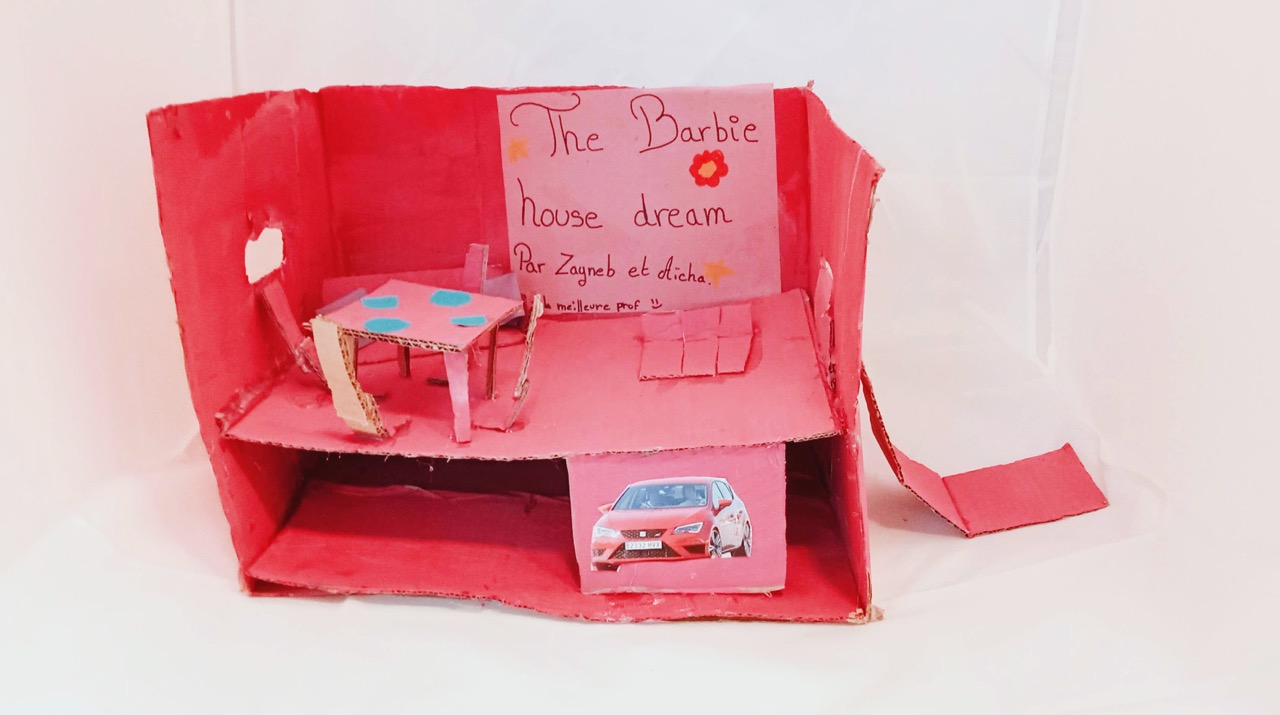 The Barbie
house dream
Par Zayneb et Aïcha.
meilleure prof